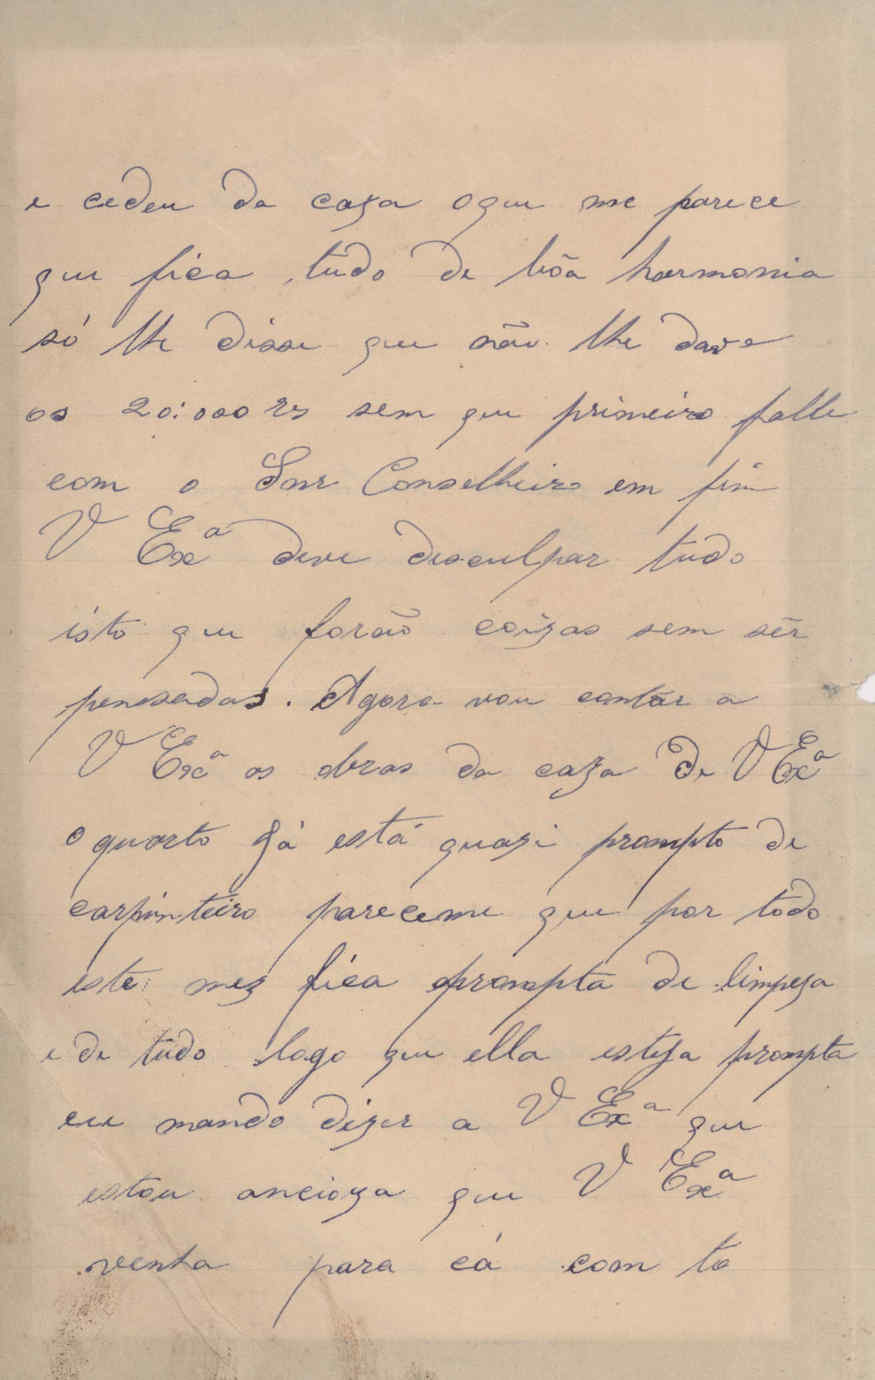 e cedeu da caza oque me parece
que fica tudo de bôa harmonia
só lhe disse que não lhe dava
os 20:000 rs sem que primeiro falle
com o Snr Conselheiro em fim
V Exª deve desculpar tudo
isto que forão coizas sem sêr
pensadas. Agora vou contar a
V Exª as obras da caza de V Exª
o quarto Já está quazi prompto de
carpinteiro pareceme que por todo
este mez fica prompta de limpeza
e de tudo logo que ella esteja prompta
eu mando dizer a V Exª que
estou ancioza que V Exª
venha para cá com to